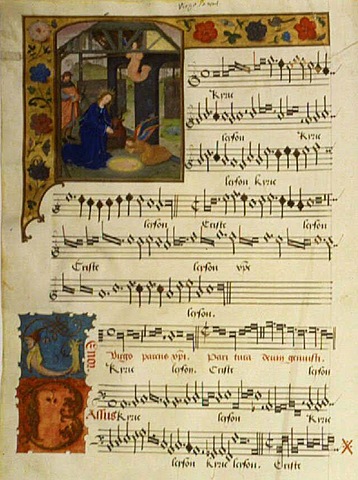 Virgo parens
Kyrie
leyson Kyrie
leyson Kyrie
leyson Criste leyson
Criste leyson xpe
leyson.
Tenor Virgo parens xpi Pari tuia deum genuisti.
Kyrie leyson. Criste leyson
Bassus Kyrie leyson Kyrie
leyson Kyrie leyson. Criste